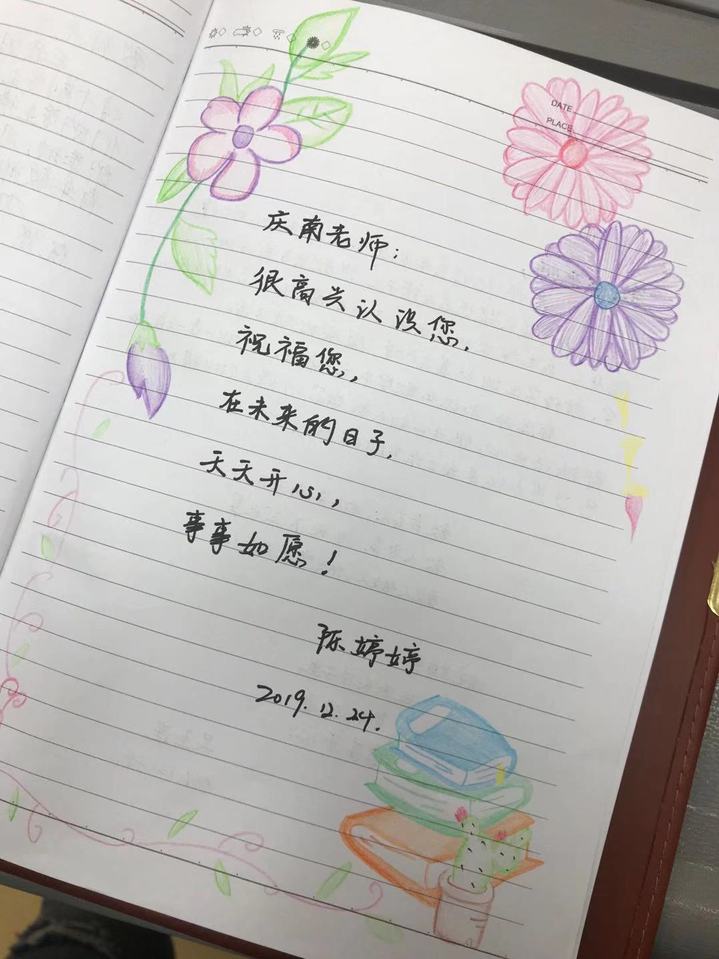 DATE
PLACE
庆南老师：
很高兴认识您，
祝福您，
在未来的日子，
天天开心，
事事如愿！
陈婷婷
2019.12.24.